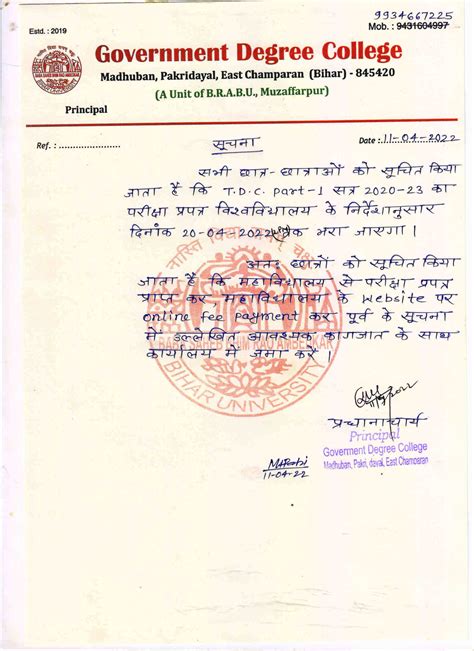 Estd. : 2019
9934667225
Mob. : 9431604997
Government Degree College
Madhuban, Pakridayal, East Champaran (Bihar) - 845420
(A Unit of B.R.A.B.U., Muzaffarpur)
Principal
Ref. : ......................
सूचना
Date : 11-04-2022
सभी छात्र-छात्राओं को सूचित किया
जाता है कि T.D.C. Part-1 सत्र 2020-23 का
परीक्षा प्रपत्र विश्वविद्यालय के निर्देशानुसार
दिनांक 20-04-2022 तक भरा जाएगा।
अतः छात्रों को सूचित किया
जाता है कि महाविद्यालय से परीक्षा प्रपत्र
प्राप्त कर महाविद्यालय के Website पर
online fee payment कर पूर्व के सूचना
में उल्लेखित आवश्यक कागजात के साथ
कार्यालय में जमा करें।
BABA SAHEB BHIM RAO AMBEDKAR
BIHAR UNIVERSITY
प्रधानाचार्य
Principal
Goverment Degree College
Madhuban, Pakri, dayal, East Champaran
11-04-22